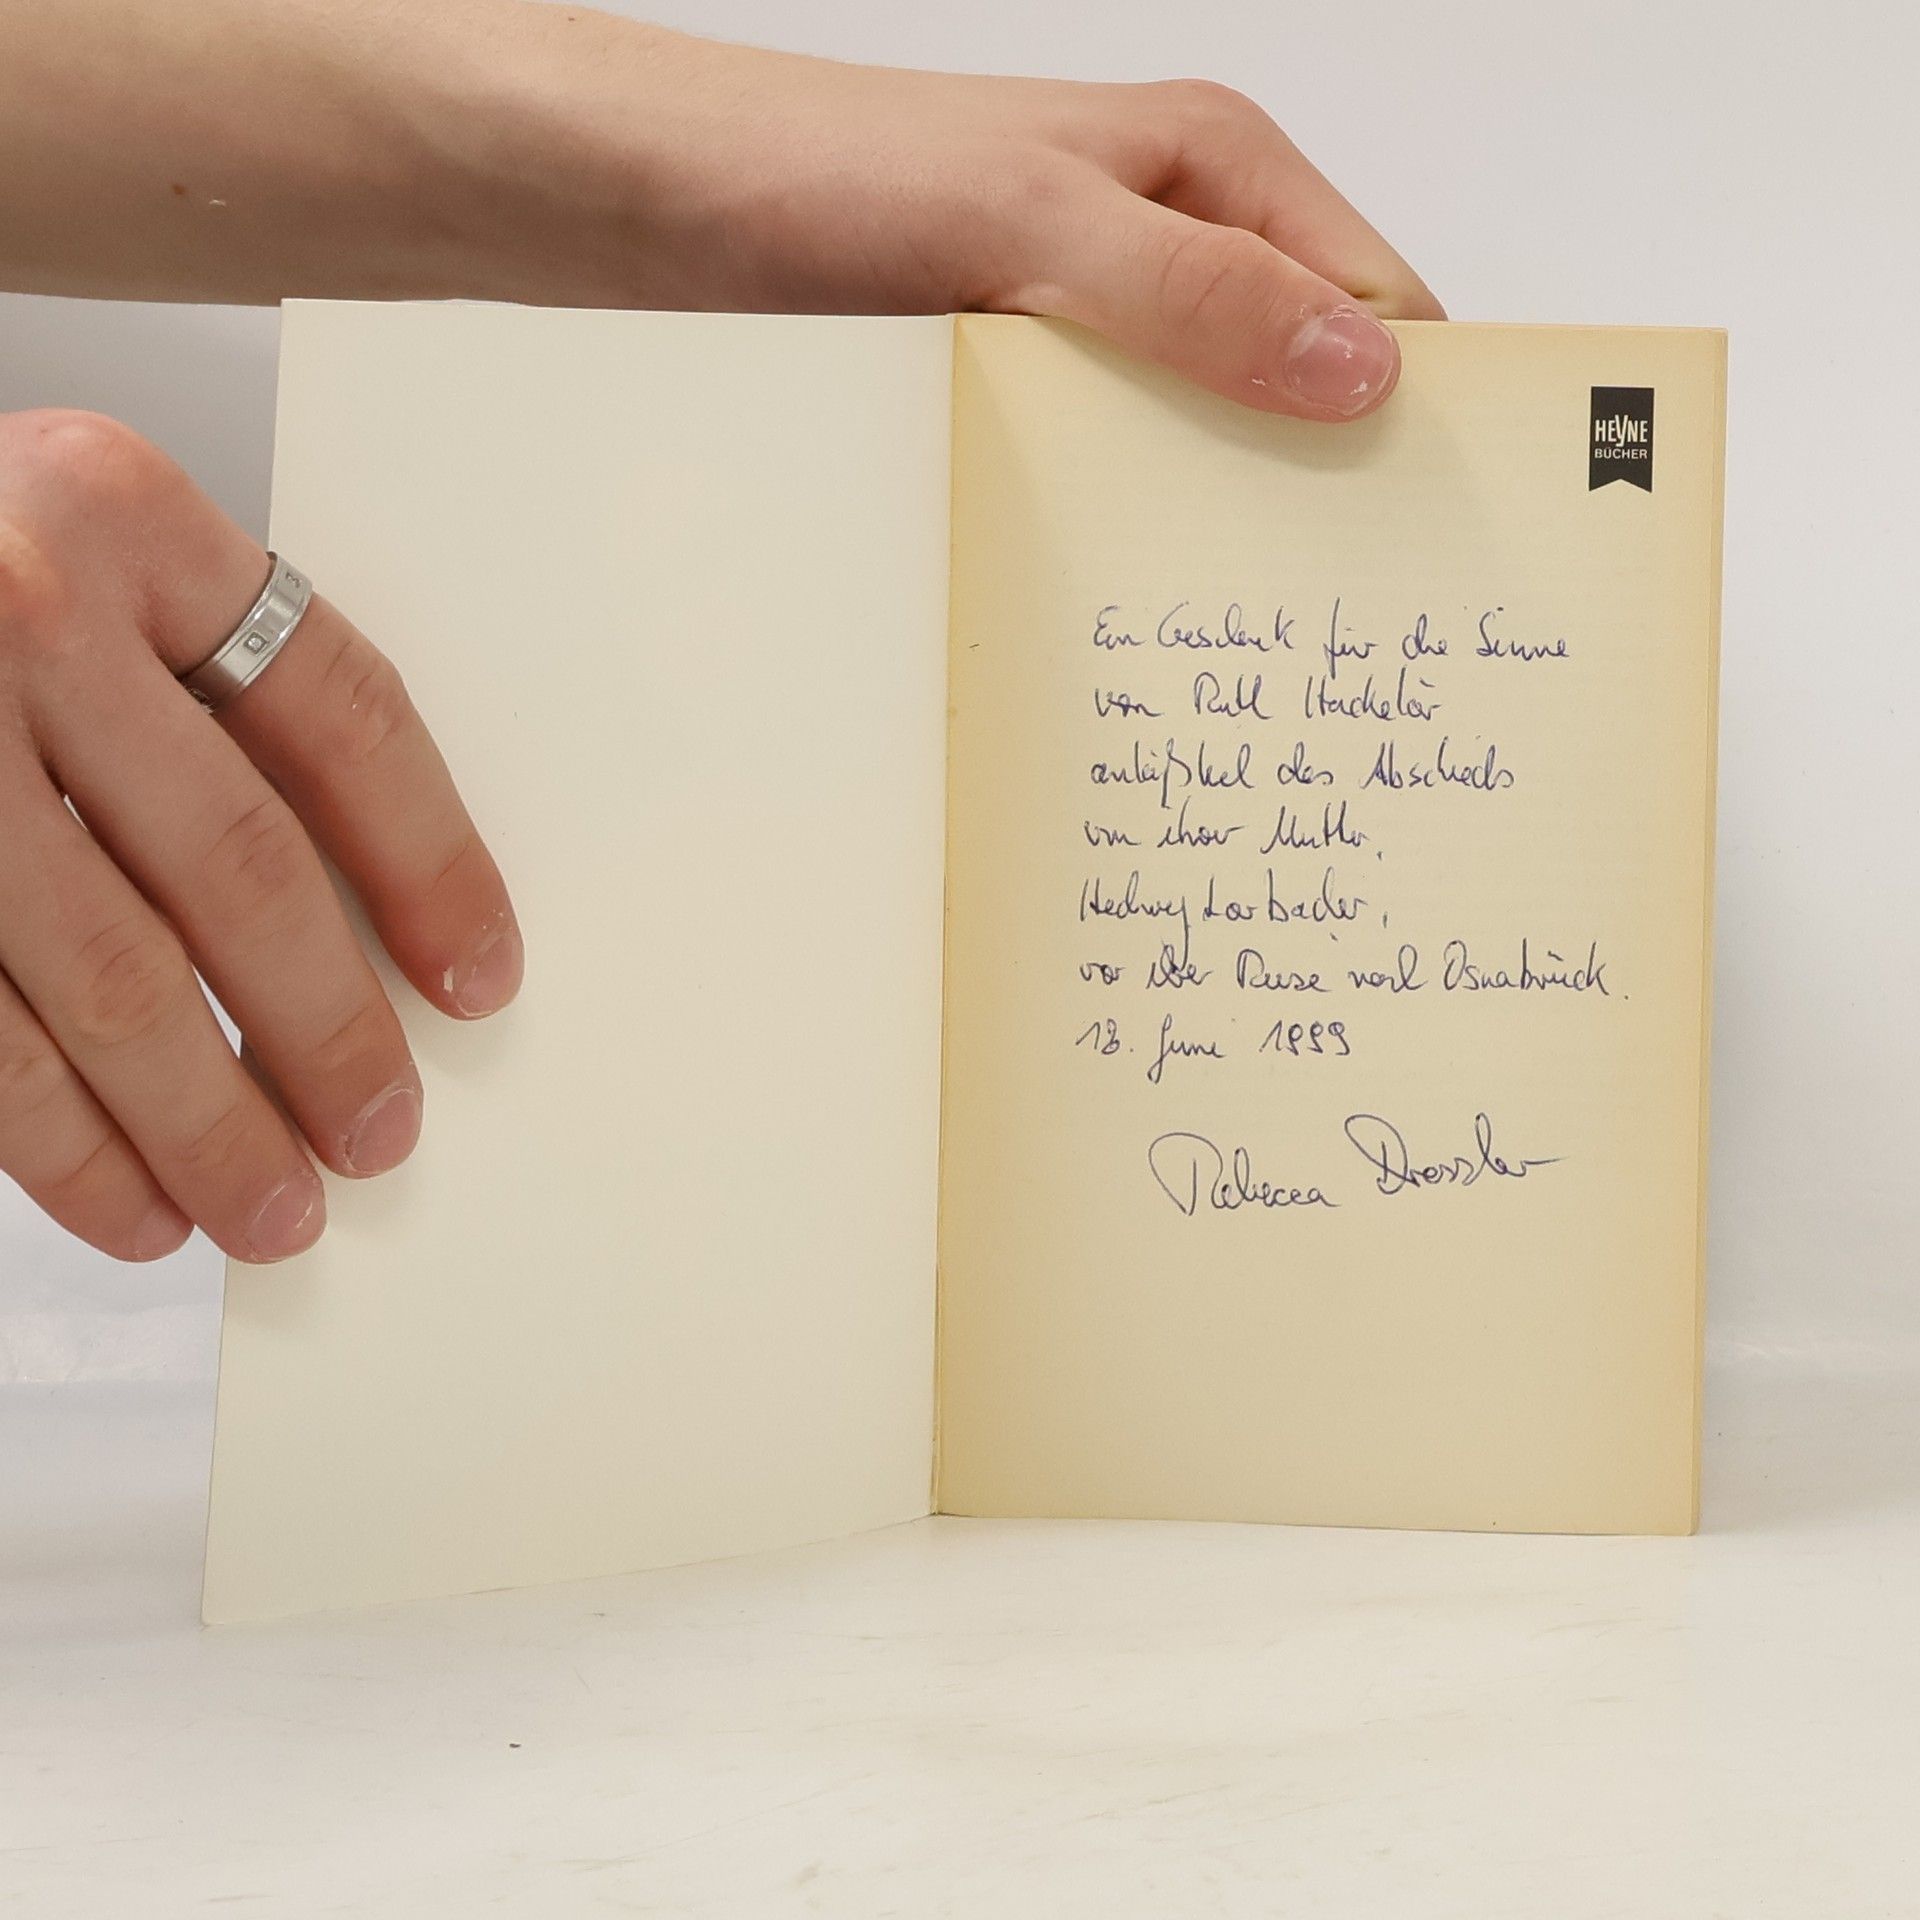 HEYNE
BÜCHER
Ein Geschenk für die Sinne
von Ruth
anläßlich des Abschieds
von ihrer Mutter,
Hedwig
vor ihrer Reise nach Osnabrück.
Juni 1999
Rebecca Dressler